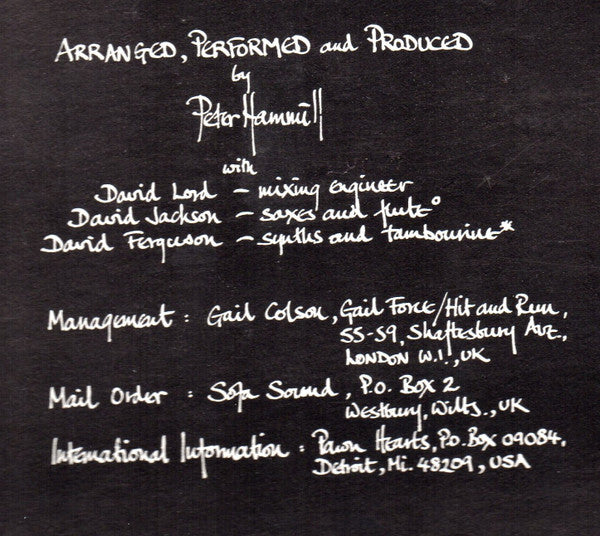 ARRANGED, PERFORMED and PRODUCED
by
Peter Hammill
with
David Lord – mixing engineer
David Jackson – saxes and flute°
David Ferguson – synths and tambourine*
Management : Gail Colson, Gail Force/Hit and Run,
55-59, Shaftesbury Ave.,
LONDON W.1., UK
Mail Order : Sofa Sound, P.O. Box 2
Westbury, Wilts., UK
International Information : Pawn Hearts, P.O. Box 09084,
Detroit, Mi. 48209, USA